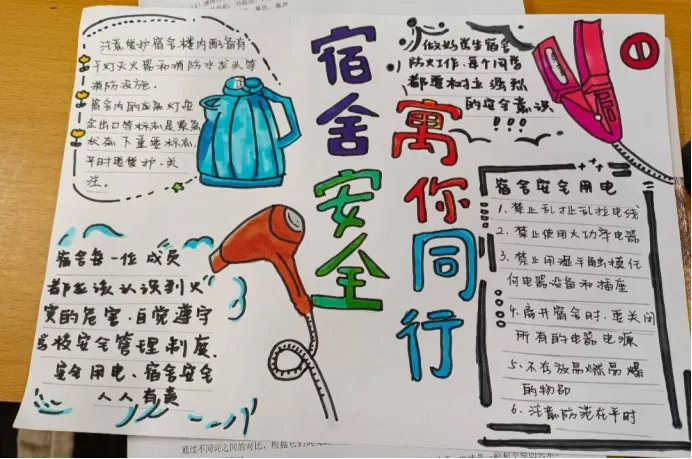 宿舍安全
寓你同行
注意爱护宿舍楼内配备有
干灯灭火器和消防水龙头等
消防设施.
宿舍内的应急灯、安
全出口等标志是紧急
状态下重要标志.
平时要爱护、关
注.
做好学生宿舍
防火工作.每个同学
都要树立强烈
的安全意识
!!!
宿舍每一位成员
都应该认识到火
灾的危害.自觉遵守
学校安全管理制度.
安全用电、宿舍安全
人人有责
宿舍安全用电
1.禁止乱扯乱拉电线
2.禁止使用大功率电器
3.禁止用湿手触摸任
何电器设备和插座
4.离开宿舍时.要关闭
所有的电器电源
5.不存放易燃易爆
的物品
6.注意防范在平时
通过不同词之间的对比,根据它们